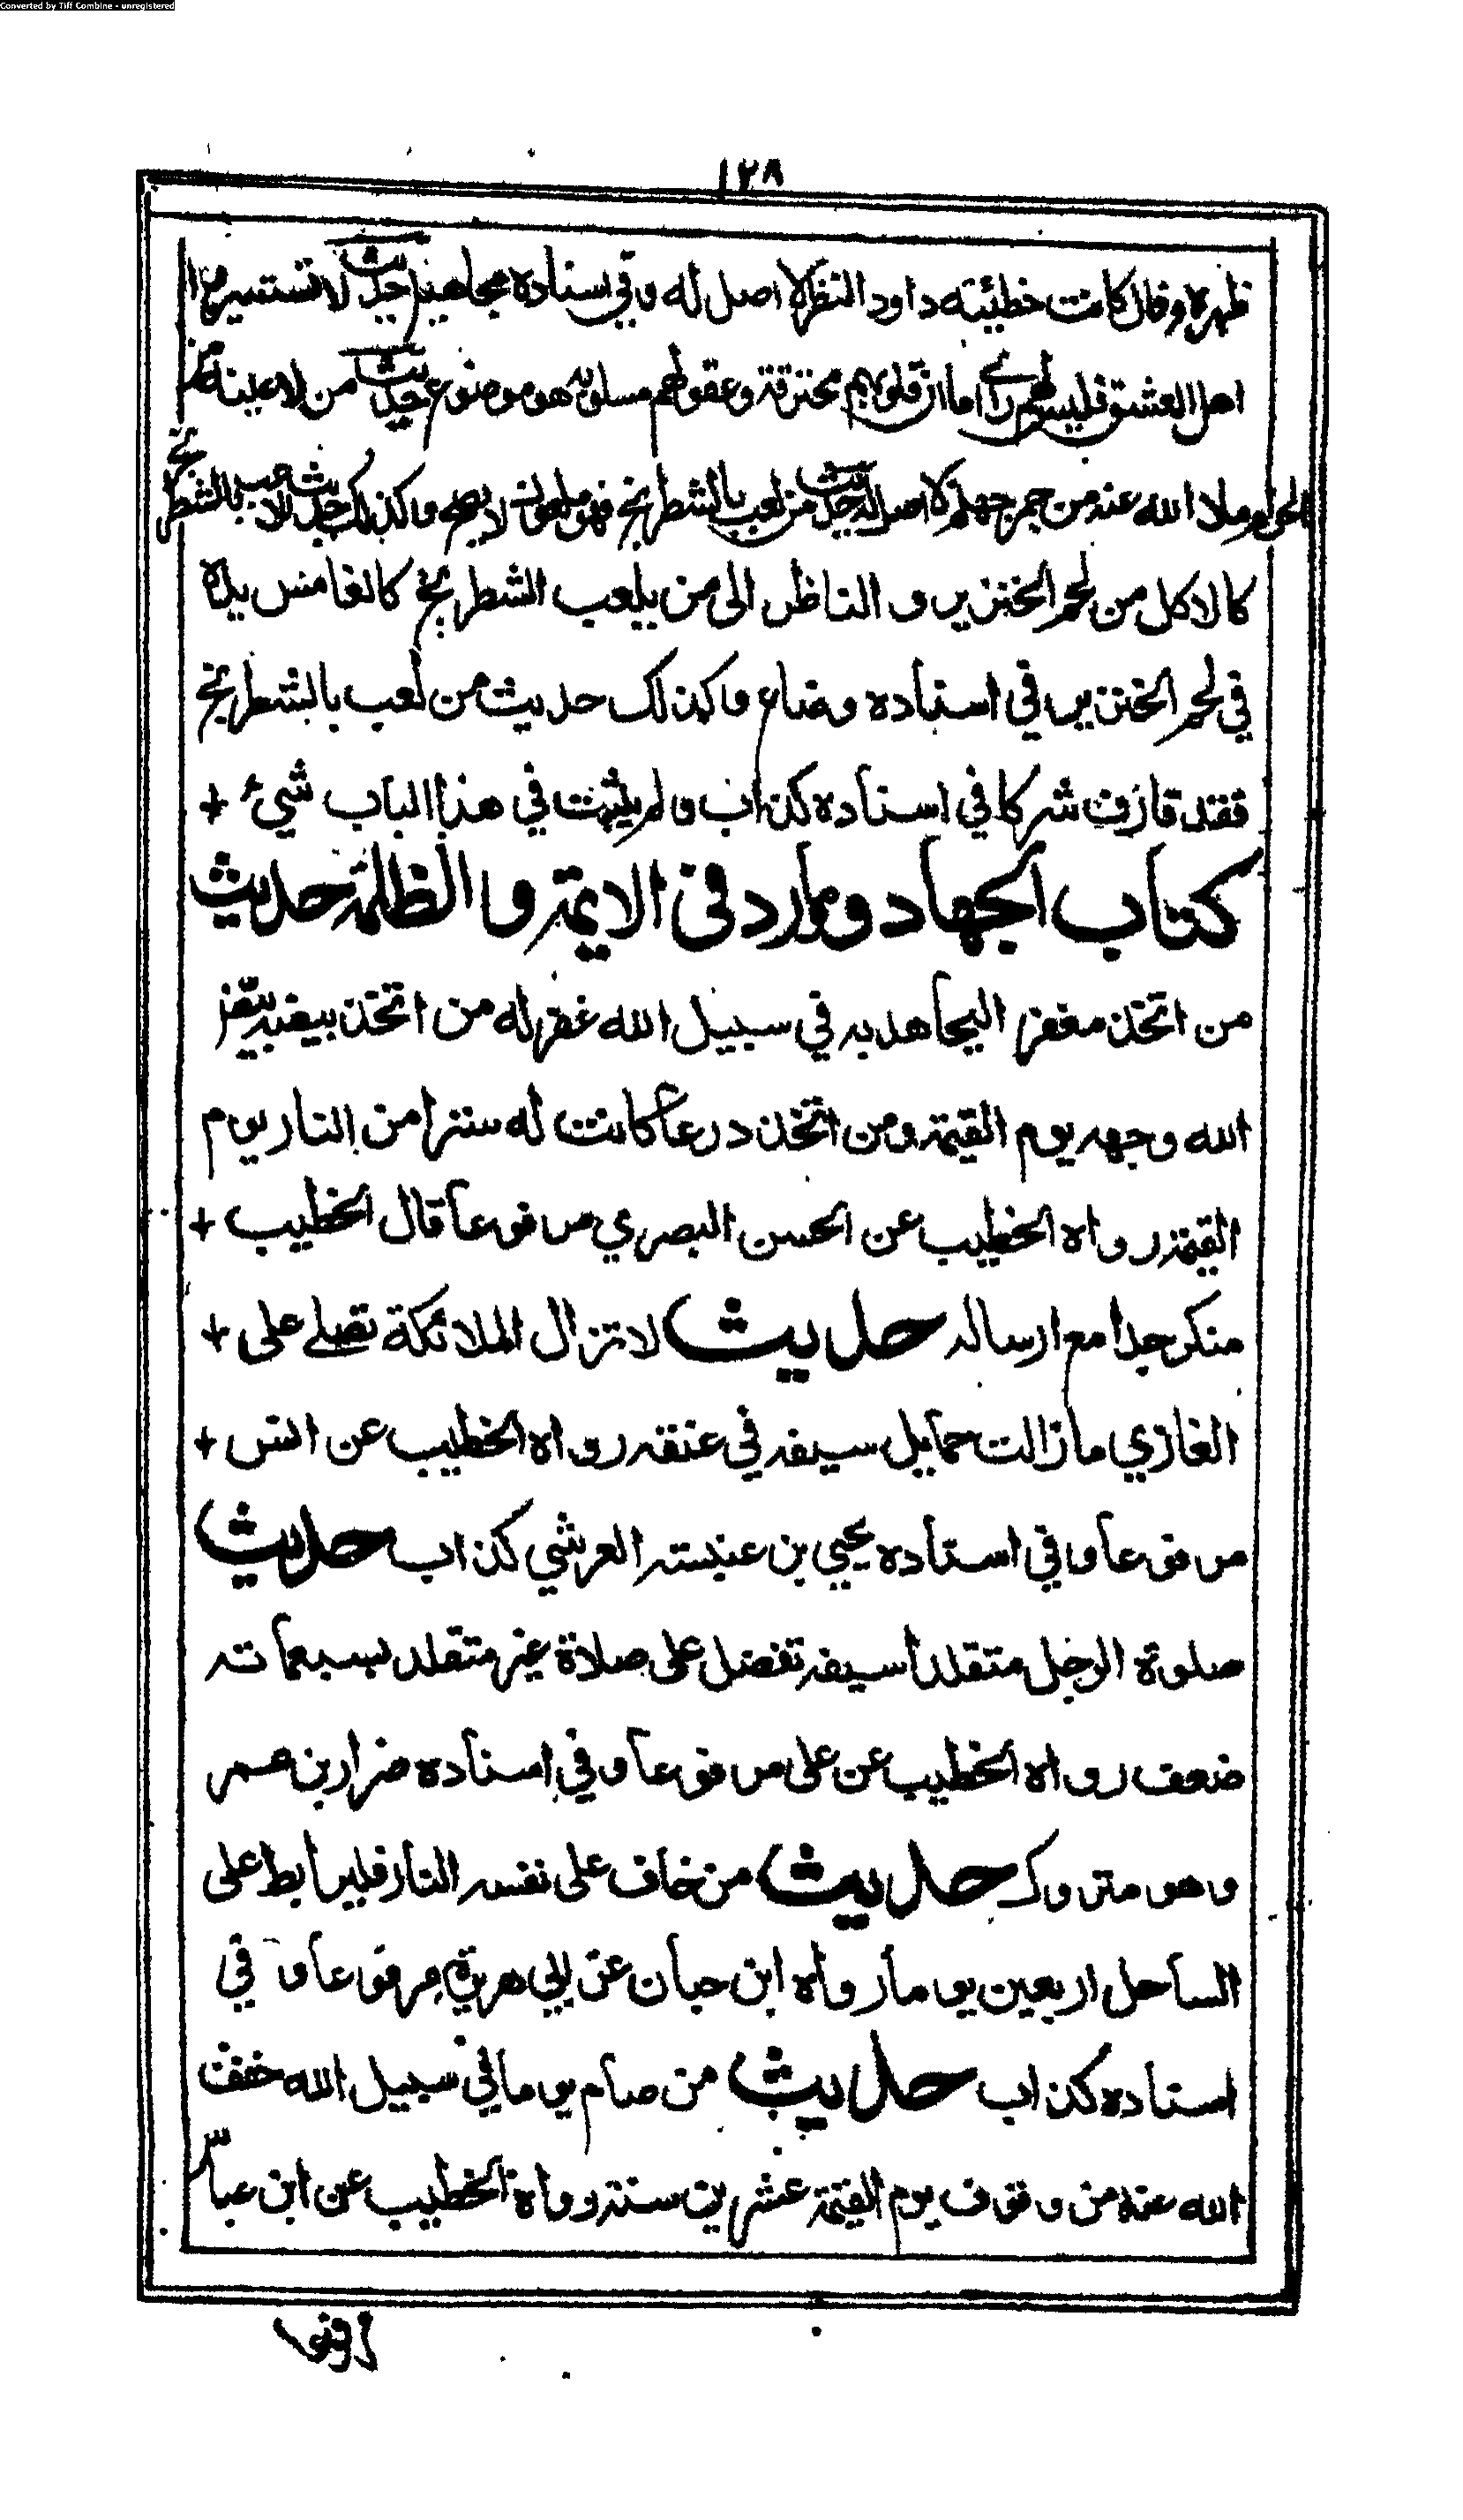 Converted by Tiff Combine - unregistered
١٢٨
ظهره وقال كانت خطيئة داود النظر لا اصل له وفي اسناده مجاهيل حديث لا تستشيروا
اهل العشق فليس لهم رأي اما ان قلوبهم محترقة وعقولهم مسلوبه هو موضوع حديث من لا عينه من
الحرام ملا الله عنه من جمر جهنم لا اصل له حديث من لعب بالشطرنج فهو ملعون لا يصح وكذلك حديث اللاعب بالشطرنج
كالاكل من لحم الخنزير و الناظر الى من يلعب الشطرنج كالغامس يده
في لحم الخنزير في اسناده وضاع وكذلك حديث من لعب بالشطرنج
فقد قارف شركا في اسناده كذاب ولم يثبت في هذا الباب شيء +
كتاب الجهاد وما ورد في الايمة والظلمة حديث
من اتخذ مغفرا ليجاهد به في سبيل الله غفر له من اتخذ بيضة بيض
الله وجهه يوم القيمة ومن اتخذ درعا كانت له سترا من النار يوم
القيمة رواه الخطيب عن الحسن البصري مرفوعا قال الخطيب +
منكر جدا مع ارساله حديث لا تزال الملائكة تصلي على +
الغازي ما زالت حمايل سيفه في عنقه رواه الخطيب عن انس +
مرفوعا وفي اسناده يحيي بن عنبسة العرشي كذاب حديث
صلوة الرجل متقلدا سيفه تفضل على صلاة غير متقلد بسبعمائة
ضعف رواه الخطيب عن على مرفوعا وفي اسناده ضرار بن عمر
وهو متروك حديث من خاف على نفسه النار فليرابط على
الساحل اربعين يوما رواه ابن حبان عن ابي هريرة مرفوعا و في
اسناده كذاب حديث من صام يوما في سبيل الله خفف
الله عنه من وقوف يوم القيمة عشرين سنة رواه الخطيب عن ابن عباس